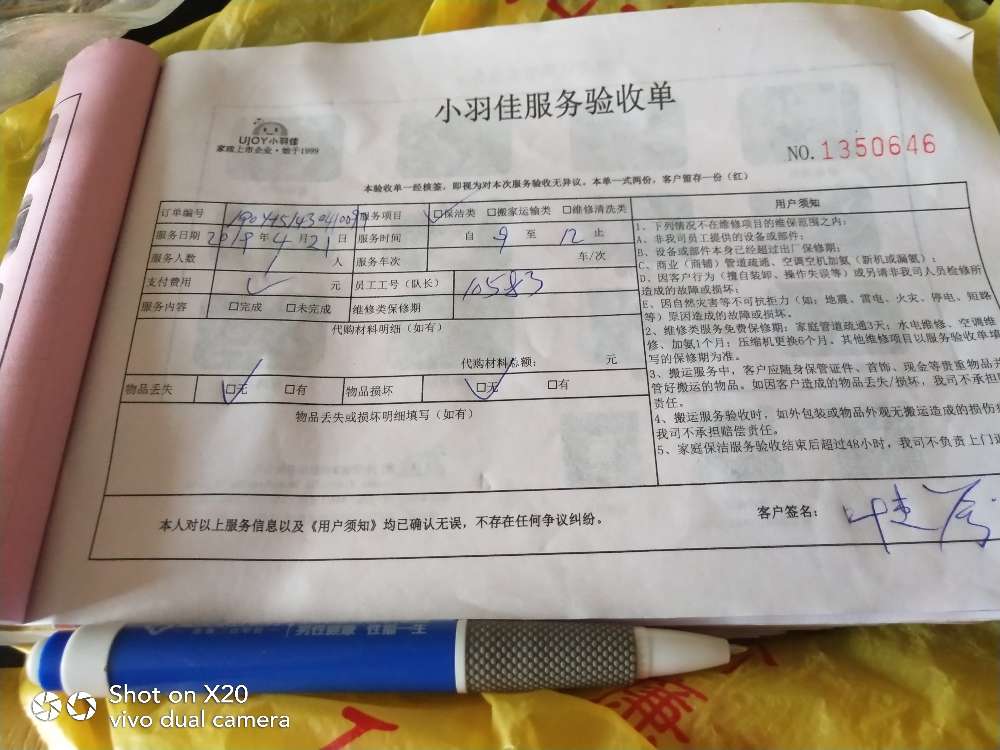 小羽佳服务验收单
UJOY小羽佳
家政上市企业·始于1999
NO.1350646
本验收单一经核签，即视为对本次服务验收无异议。本单一式两份，客户留存一份（红）
订单编号 服务项目 □保洁类 □搬家运输类 □维修清洗类
服务日期 2019年4月21日 服务时间 自 9 至 12 止
服务人数 1 人 服务车次 车/次
支付费用 元 员工工号（队长） 10583
服务内容 □完成 □未完成 维修类保修期
代购材料明细（如有）
代购材料总额： 元
物品丢失 □无 □有 物品损坏 □无 □有
物品丢失或损坏明细填写（如有）
用户须知
1、下列情况不在维修项目的维保范围之内：
A、非我司员工提供的设备或部件；
B、设备或部件本身已经超过出厂保修期；
C、商业（商铺）管道疏通、空调空机加氟（新机或漏氟）；
D、因客户行为（擅自装卸、操作失误等）或另请非我司人员检修所
造成的故障或损坏；
E、因自然灾害等不可抗拒力（如：地震、雷电、火灾、停电、短路
等）原因造成的故障或损坏。
2、维修类服务免费保修期：家庭管道疏通3天；水电维修、空调维
修、加氟1个月；压缩机更换6个月。其他维修项目以服务验收单填
写的保修期为准。
3、搬运服务中，客户应随身保管证件、首饰、现金等贵重物品并
管好搬运的物品。如因客户造成的物品丢失/损坏，我司不承担
责任。
4、搬运服务验收时，如外包装或物品外观无搬运造成的损伤
我司不承担赔偿责任。
5、家庭保洁服务验收结束后超过48小时，我司不负责上门
本人对以上服务信息以及《用户须知》均已确认无误，不存在任何争议纠纷。
客户签名：
Shot on X20
vivo dual camera